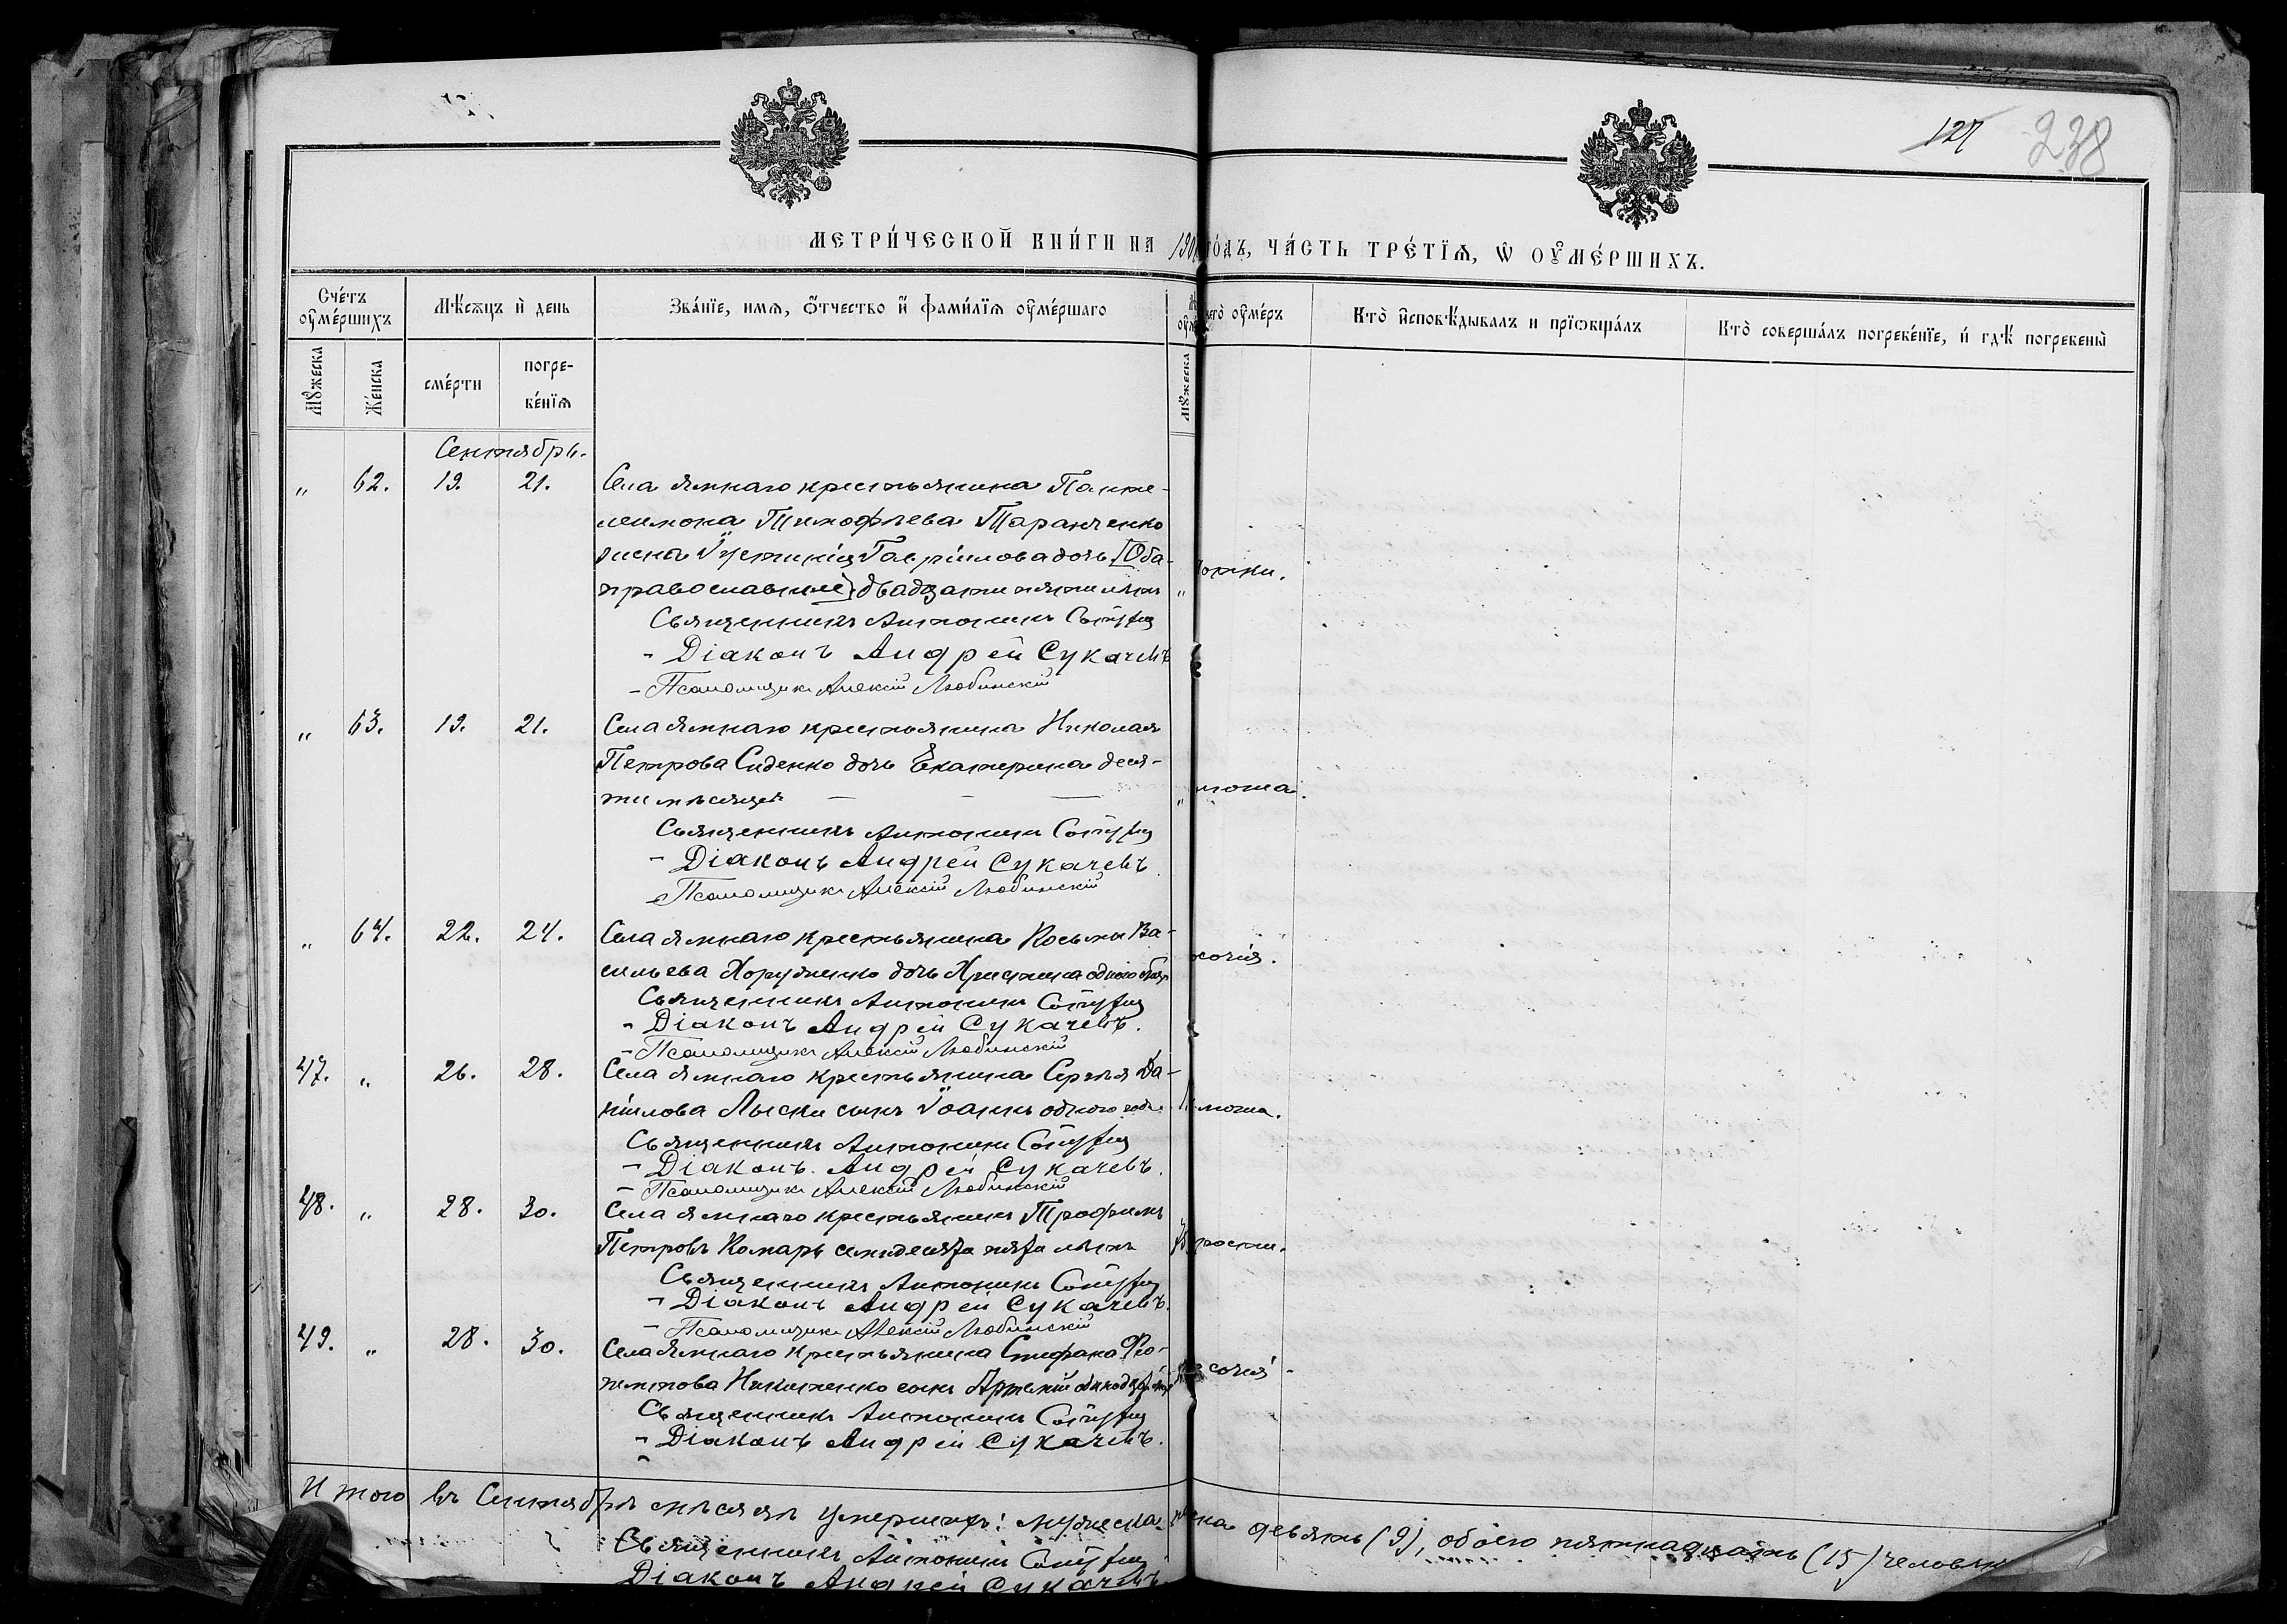 127 238
МЕТРИ́ЧЕСКОЙ КНИ́ГИ НА 190 ГО́ДЪ, ЧА́СТЬ ТРЕ́ТЇѦ, Ѡ ОУ҆МЕ́РШИХЪ.
Сче́тъ оу҆ме́ршихъ
Мѣ́сѧцъ и҆ де́нь
Зва́нїе, имѧ, ѻ҆́тчество и҆ фами́лїѧ оу҆ме́ршаго
чего̀ оу҆ме́ръ
Кто̀ и҆сповѣ́дывалъ и прїѡбща́лъ
Кто̀ соверша́лъ погребе́нїе, и҆ гдѣ̀ погребены̀
Мꙋ́жеска
Же́нска
сме́рти
погребе́нїѧ
Мꙋ́жеска
Сентябрь.
„ 62. 19. 21. Села Ямнаго крестьянина Панте-
леимона Тимофѣева Таранченко
жена Гавріилова дочь [Оба
православные] двадцати пяти лѣтъ „
Священникъ Антонинъ
- Діаконъ Андрей Сукачевъ
- Псаломщикъ Алексій Любинскій
„ 63. 19. 21. Села Ямнаго крестьянина Николая
Петрова Сиденко дочь Екатерина деся-
ти мѣсяцевъ „
Священникъ Антонинъ
- Діаконъ Андрей Сукачевъ
- Псаломщикъ Алексій Любинскій
„ 64. 22. 24. Села Ямнаго крестьянина Косьмы Ва-
сильева Хоруженко дочь Христина одного
Священникъ Антонинъ
- Діаконъ Андрей Сукачевъ.
- Псаломщикъ Алексій Любинскій
47. „ 26. 28. Села Ямнаго крестьянина Сергѣя Да-
ніилова Лыски сынъ Іоаннъ одного года
Священникъ Антонинъ
- Діаконъ Андрей Сукачевъ.
- Псаломщикъ Алексій Любинскій
48. „ 28. 30. Села Ямнаго крестьянинъ Трофимъ
Петровъ Комаръ семидесяти пяти лѣтъ
Священникъ Антонинъ
- Діаконъ Андрей Сукачевъ.
- Псаломщикъ Алексій Любинскій
49. „ 28. 30. Села Ямнаго крестьянина Стефана
Никитенко сынъ
Священникъ Антонинъ
- Діаконъ Андрей Сукачевъ.
Итого въ Сентябрѣ мѣсяцѣ умершихъ: мужеска девять (9), обоего пятнадцать (15) человѣкъ
Священникъ Антонинъ
Діаконъ Андрей Сукачевъ.